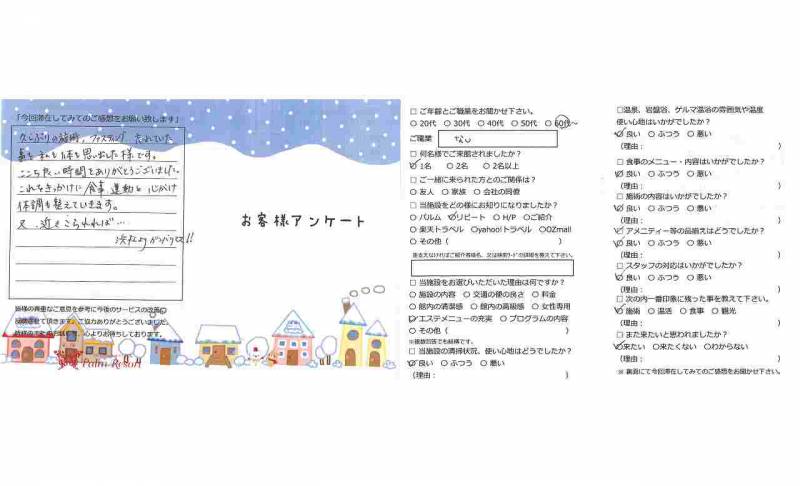 「今回滞在してみてのご感想をお願い致します」
久しぶりの施術、ファスティング、忘れていた
事を私も体も思い出した様です。
ここち良い時間をありがとうございました。
これをきっかけに食事、運動と心がけ
体調を整えていきます。
又、近々こられれば…
皆様の貴重なご意見を参考に今後のサービスの改善に
反映させて頂きます。ご協力ありがとうございました。
Palm Resort
お客様アンケート
□ ご年齢とご職業をお聞かせ下さい。
○ 20代 ○ 30代 ○ 40代 ○ 50代 ○ 60代~
ご職業 なし
□ 何名様でご来館されましたか?
○ 1名 ○ 2名 ○ 2名以上
□ ご一緒に来られた方とのご関係は?
○ 友人 ○ 家族 ○ 会社の同僚
□ 当施設をどの様にお知りになりましたか?
○ パルム ○リピート ○ H/P ○ご紹介
○ 楽天トラベル ○yahoo!トラベル ○OZmall
○ その他( )
□ 当施設をお選びいただいた理由は何ですか?
○ 施設の内容 ○ 交通の便の良さ ○ 料金
○ 館内の清潔感 ○ 館内の高級感 ○ 女性専用
○ エステメニューの充実 ○ プログラムの内容
○ その他( )
※複数回答でも結構です。
□ 当施設の清掃状況、使い心地はどうでしたか?
○ 良い ○ ふつう ○ 悪い
(理由: )
□温泉、岩盤浴、ゲルマ温浴の雰囲気や温度
使い心地はいかがでしたか?
○ 良い ○ ふつう ○ 悪い
(理由: )
□ 食事のメニュー・内容はいかがでしたか?
○ 良い ○ ふつう ○ 悪い
(理由: )
□ 施術の内容はいかがでしたか?
○ 良い ○ ふつう ○ 悪い
(理由:
□ アメニティー等の品揃えはどうでしたか?
○ 良い ○ ふつう ○ 悪い
(理由: )
□ スタッフの対応はいかがでしたか?
○ 良い ○ ふつう ○ 悪い
(理由: )
□ 次の内一番印象に残った事を教えて下さい。
○ 施術 ○ 温活 ○ 食事 ○ 観光
□ また来たいと思われましたか?
○来たい ○来たくない ○わからない
(理由: )
※ 裏面にて今回滞在してみてのご感想をお聞かせ下さい。